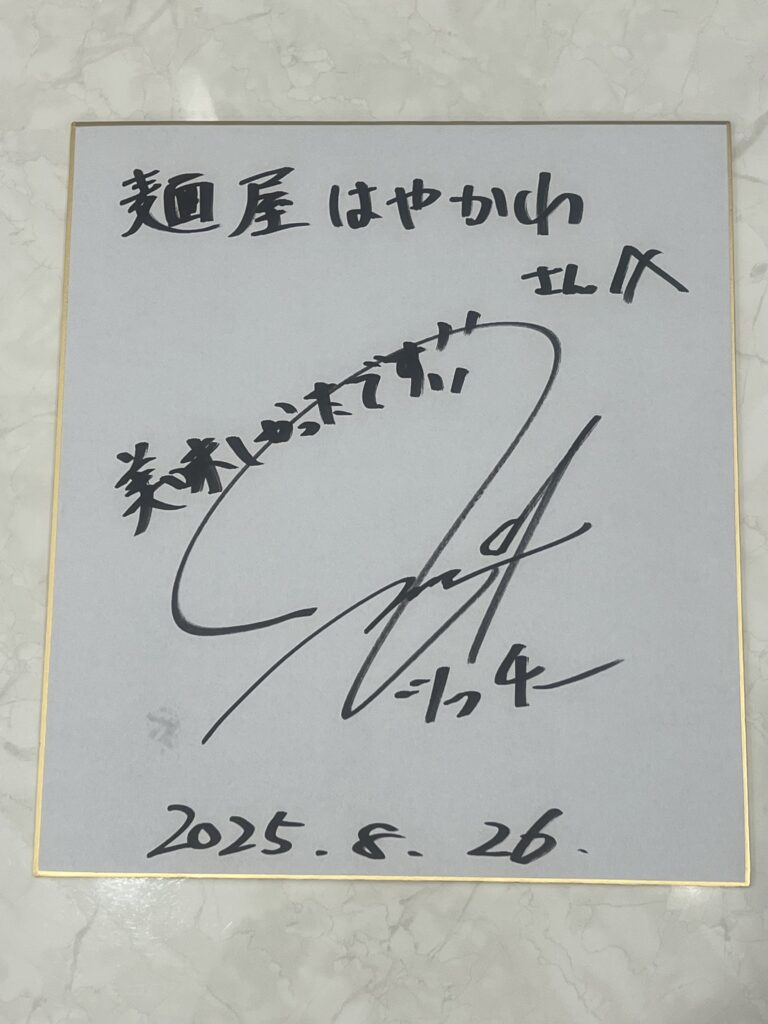 麺屋 はやかわ
さんへ
美味しかったです!!
2025.8.26.